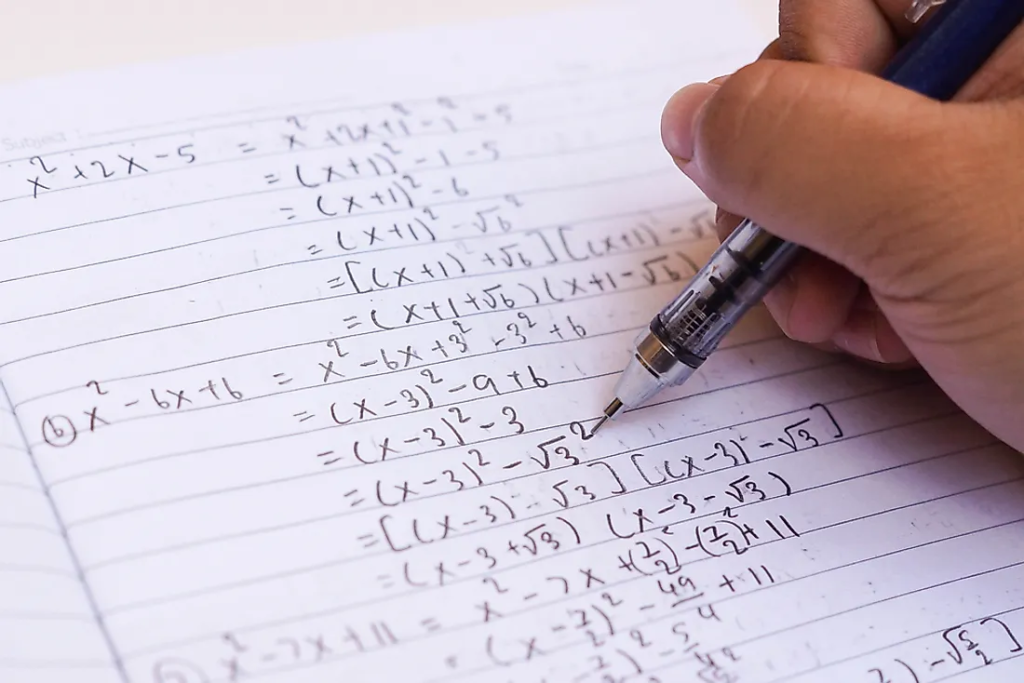 Subject
x² + 2x - 5 = x² + 2x + 1² - 1² - 5
= (x+1)² - 1 - 5
= (x+1)² - 6
= (x+1)² - √6²
= [(x+1) + √6][(x+1) - √6
= (x+1+√6)(x+1-√6)
(b) x² - 6x + 6 = x² - 6x + 3² - 3² + 6
= (x-3)² - 9 + 6
= (x-3)² - 3
= (x-3)² - √3²
= [(x-3) - √3][(x-3) - √3]
= (x-3+√3) (x-3-√3)
x² - 7x + 11 = x² - 7x + (7/2)² - (7/2)² + 11
= (x - 7/2)² - 49/4 + 11
7/2)² - 5/4
) - √5/2]